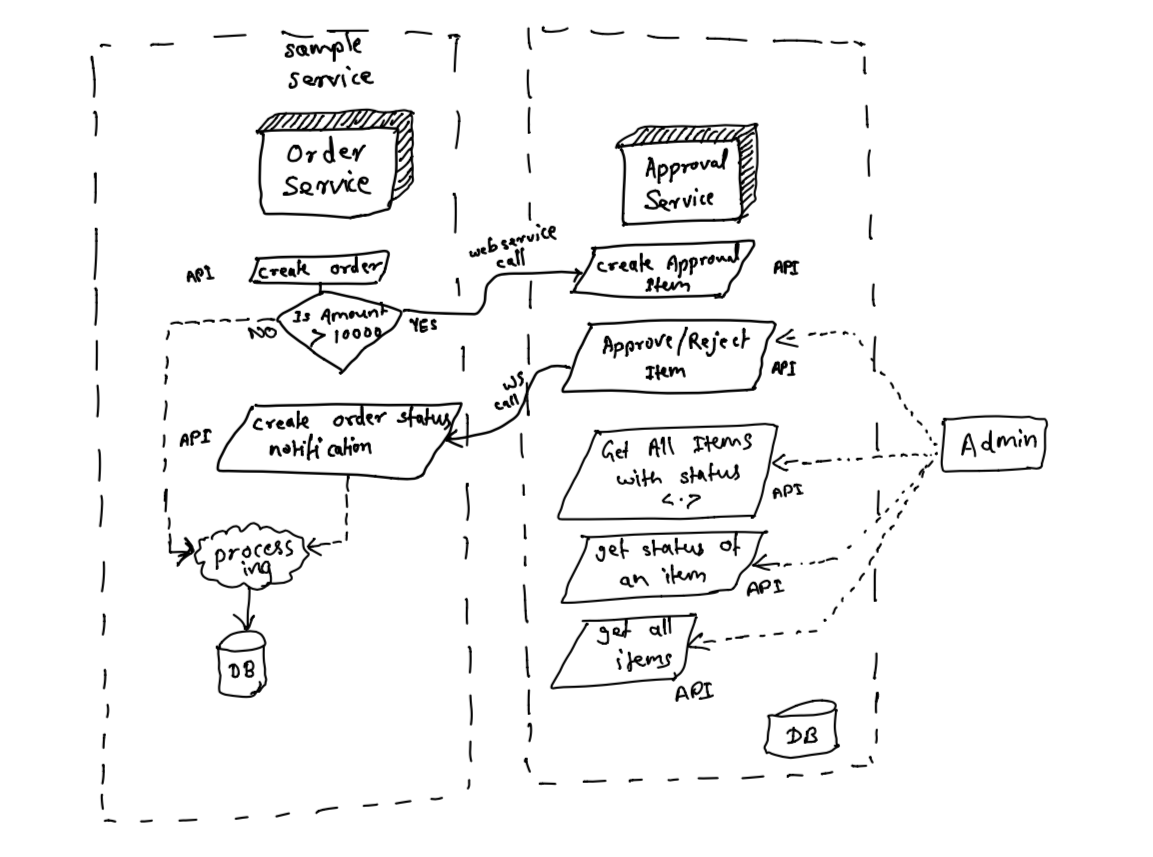 sample
service
Order
Service
API
create order
Is Amount
> 10000
NO
YES
API
create order status
notification
process
ing
DB
web service
call
WS
call
Approval
Service
create Approval
Item
API
Approve/Reject
Item
API
Get All Items
with status
<.>
API
get status of
an item
API
get all
items
API
DB
Admin